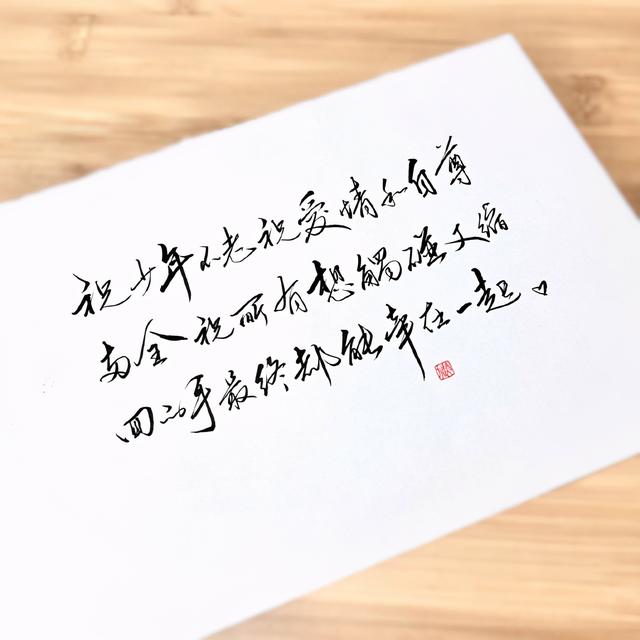 祝少年不老祝爱情和自尊
両全祝所有想觸碰又縮
回的手最终都能牵在一起